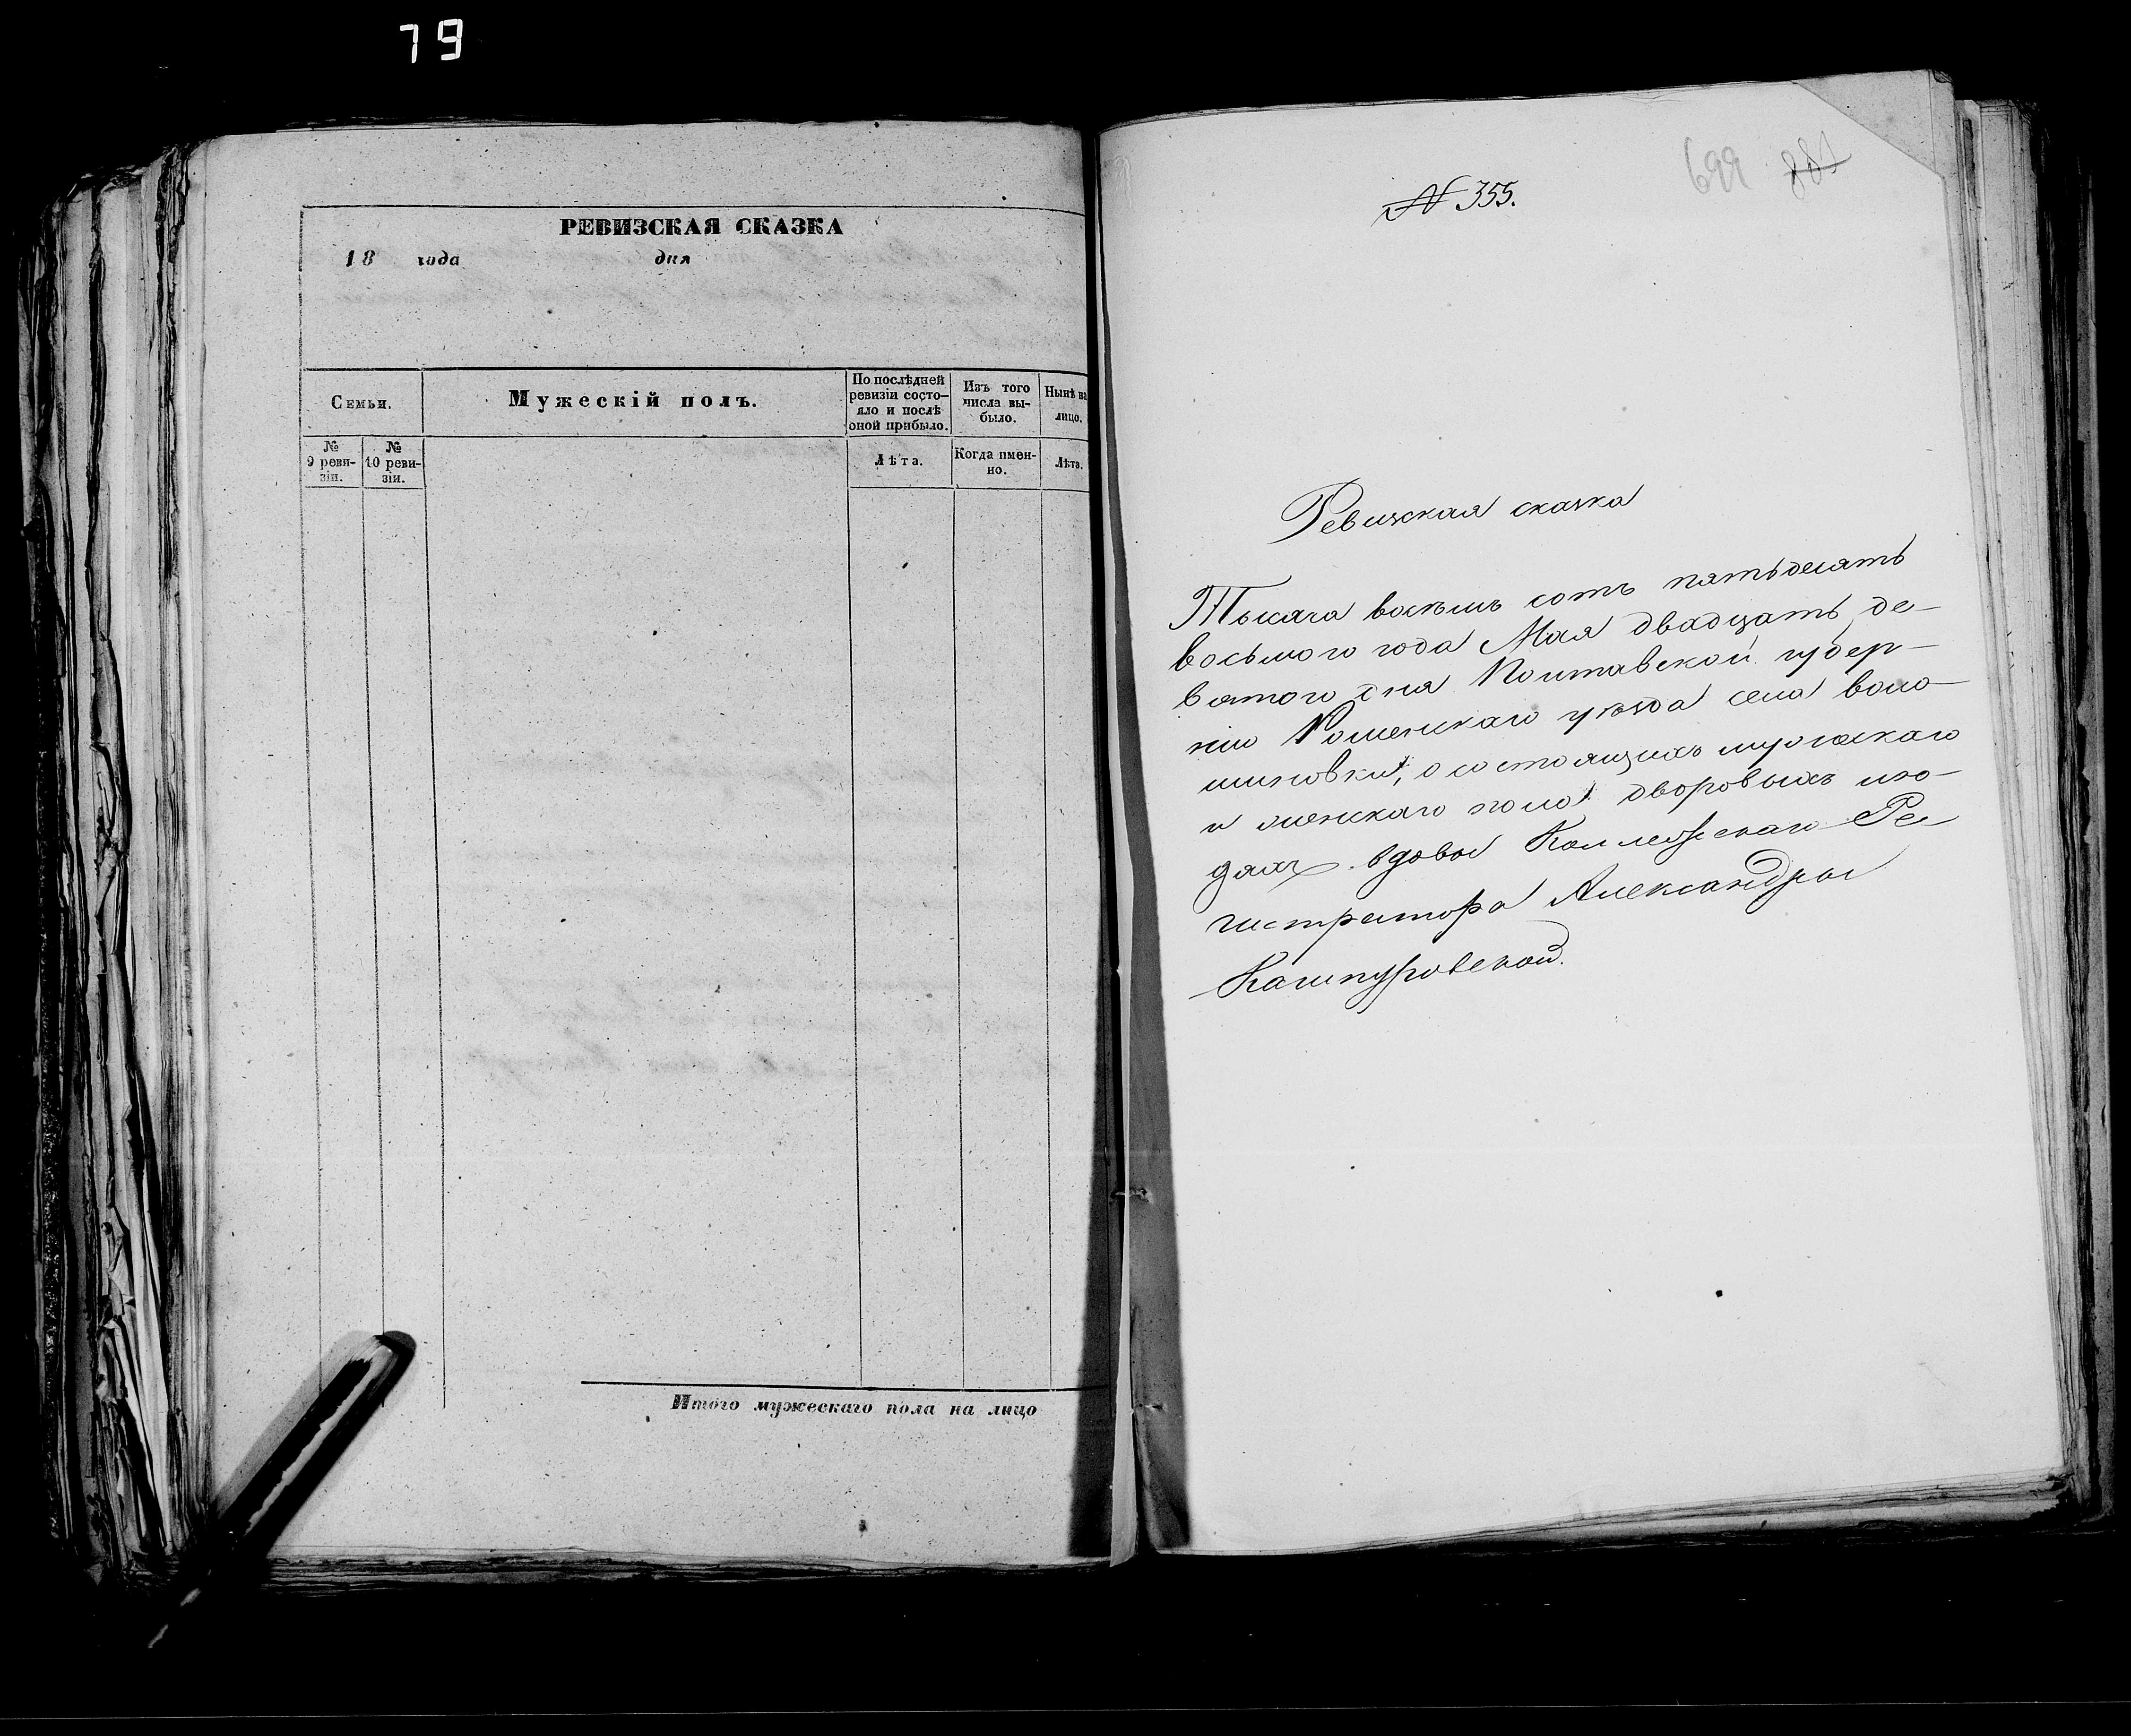 79
РЕВИЗСКАЯ СКАЗКА
18 года дня
Семьи.
Мужескій полъ.
По послѣдней
ревизіи состо-
яло и послѣ
оной прибыло.
Изъ того
числа вы-
было.
Нынѣ на
лицо.
№
9 реви-
зіи.
№
10 реви-
зіи.
Лѣта.
Когда имен-
но.
Лѣта.
Итого мужескаго пола на лицо
699 881
№ 355.
Ревизская сказка
Тысяча восемь сотъ пятьдесятъ
восьмого года Мая двадцать де-
вятого дня Полтавской губер-
ніи Роменскаго уѣзда села Воло-
шиновки, о состоящихъ мужескаго
и женскаго пола дворовыхъ лю-
дяхъ вдовы Коллежскаго Ре-
гистратора Александры
Кашпуровской.